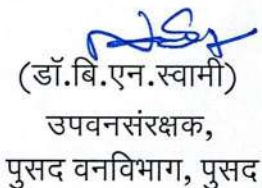 (डॉ.बि.एन.स्वामी)
उपवनसंरक्षक,
पुसद वनविभाग, पुसद